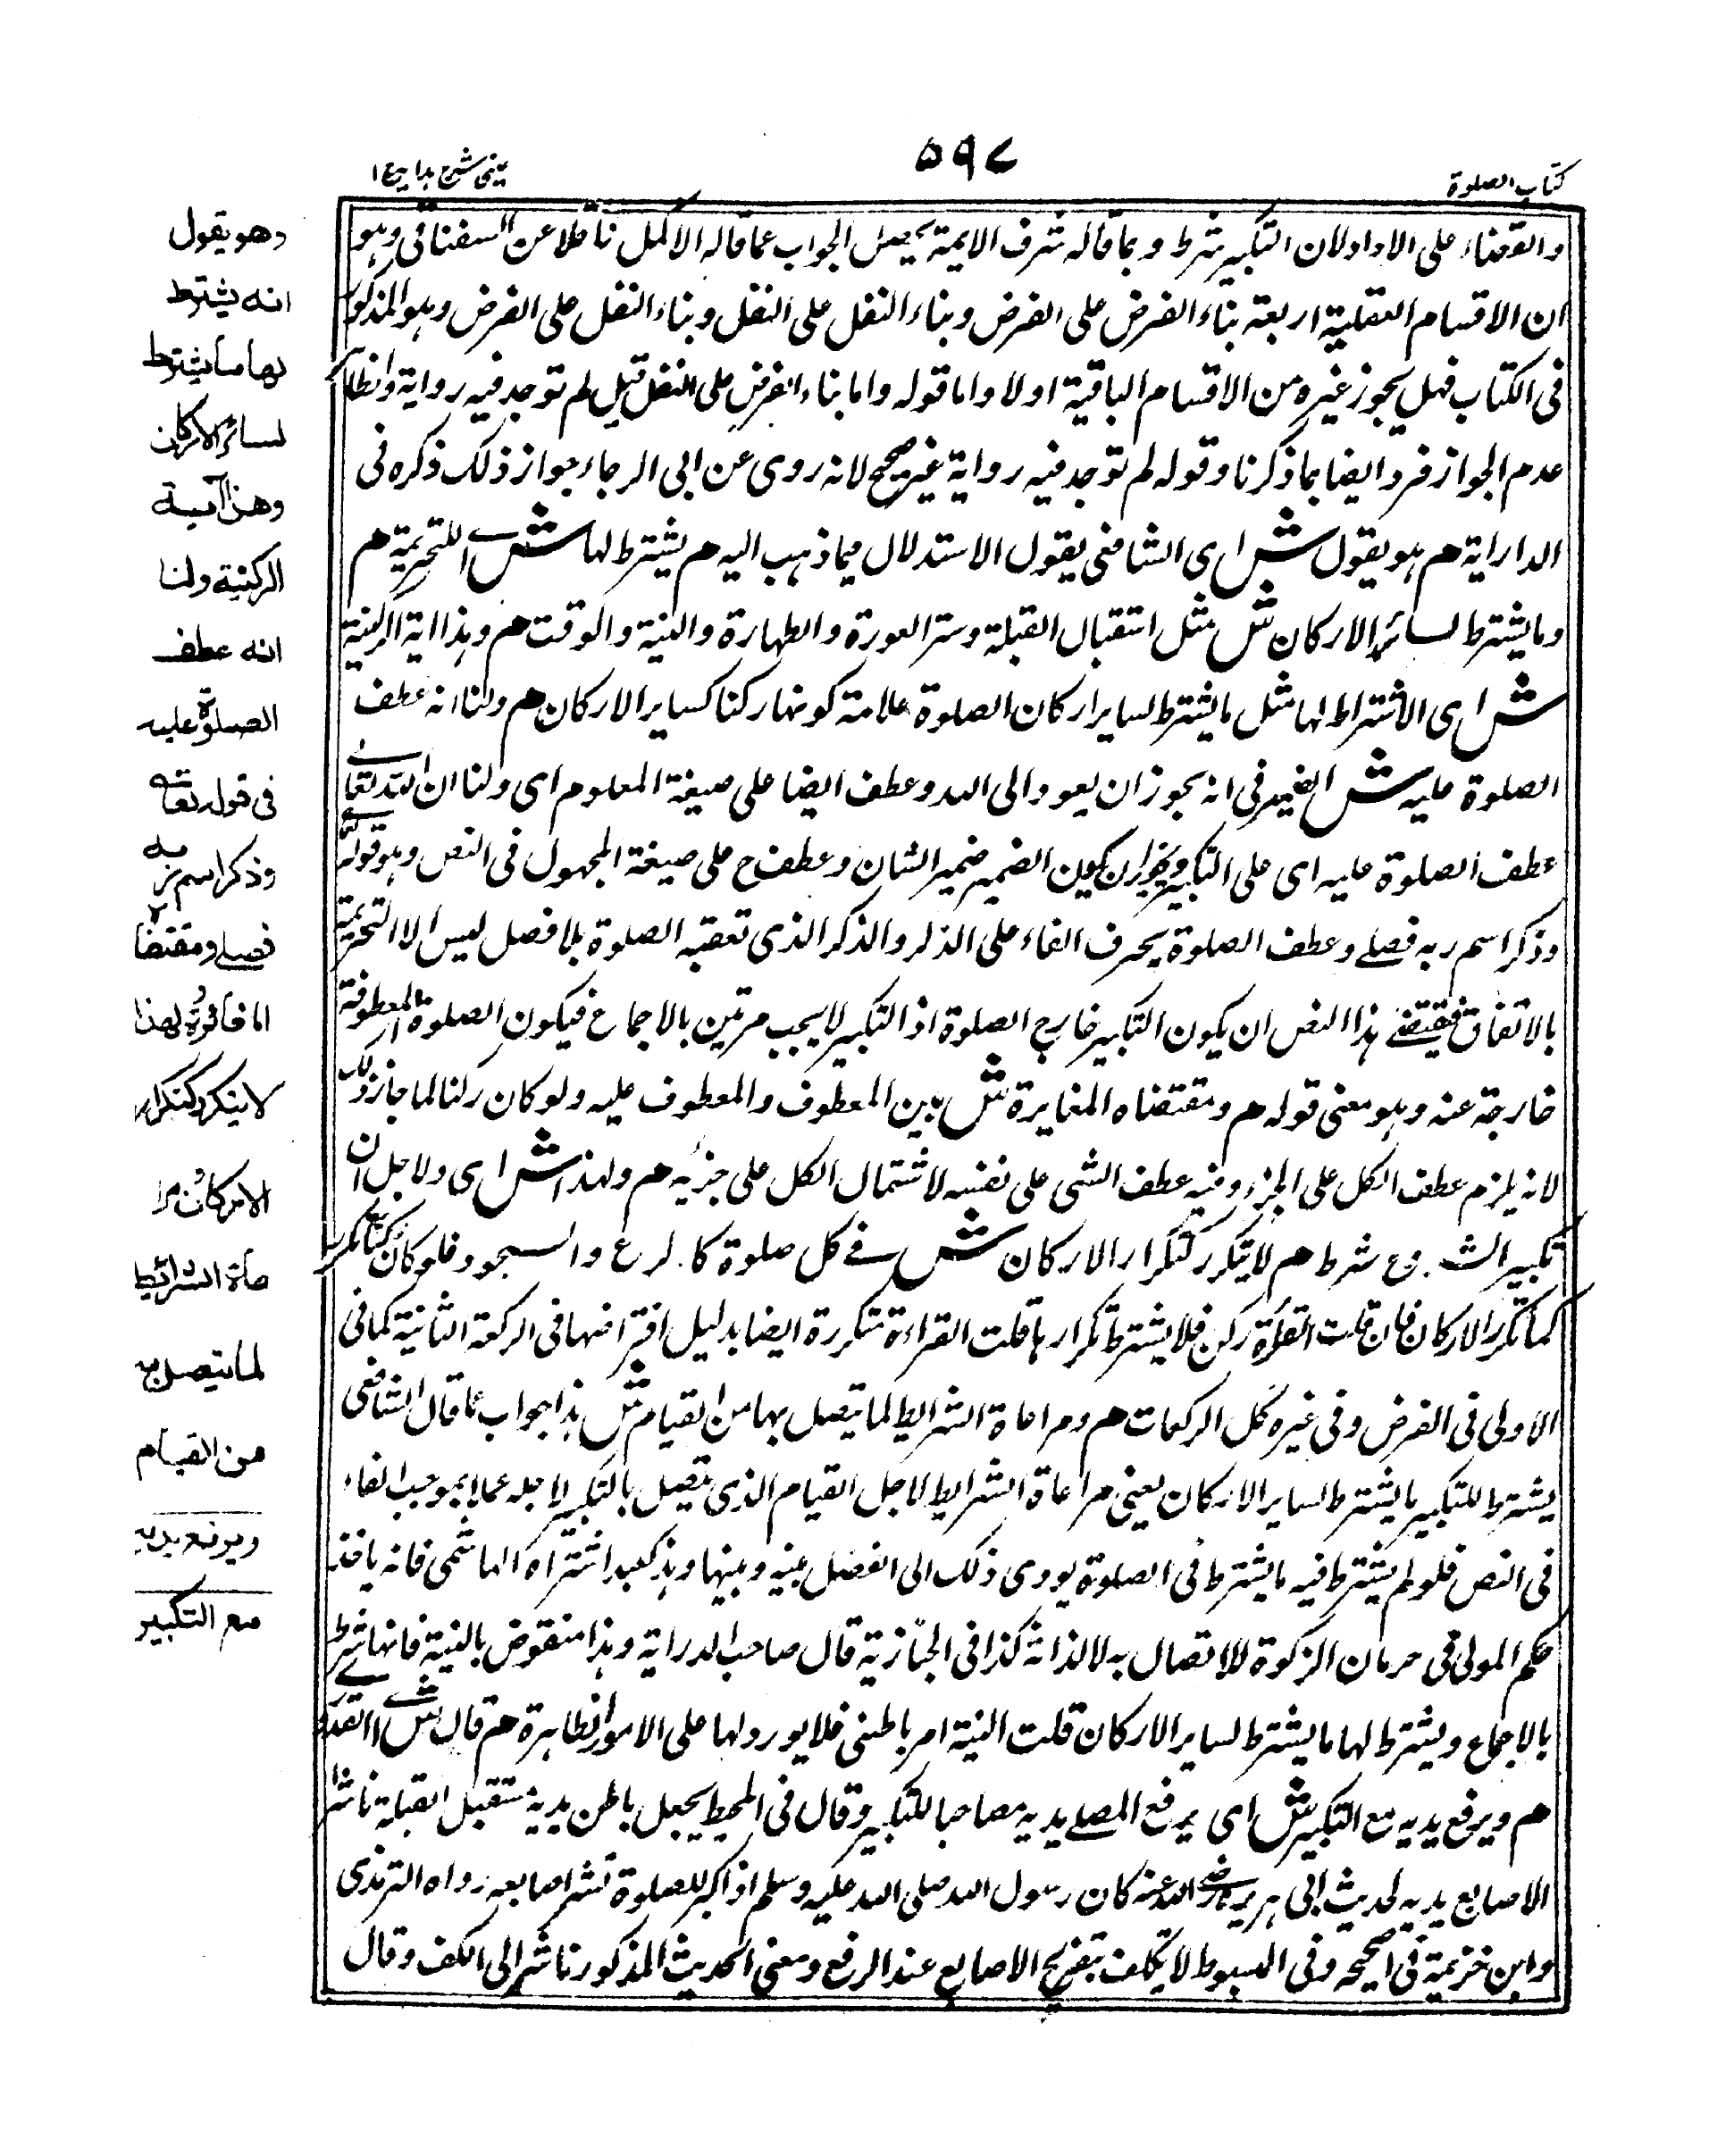 كتاب الصلوة
٥٩٧
عينى شرح هدايه ج ١
والقضاء على الاداء لان التكبير شرط وبما قاله شرف الايمة يحصل الجواب عما قاله الاكمل ناقلا عن السغناقى وهو
ان الاقسام العقلية اربعة بناء الفرض على الفرض وبناء النفل على النفل وبناء النفل على الفرض وهو المذكور
فى الكتاب فهل يجوز غيره من الاقسام الباقية اولا واما قوله واما بناء الفرض على النفل قيل لم توجد فيه رواية والظاهر
عدم الجواز فرد ايضا بما ذكرنا وقوله لم توجد فيه رواية غير صحيح لانه روى عن ابى الرجاء جواز ذلك ذكره فى
الداراية هم هو يقول ش اى الشافعى يقول الاستدلال فيما ذهب اليه هم يشترط لها ش اى للتحريمة هم
وما يشترط لسائر الاركان ش مثل استقبال القبلة وستر العورة والطهارة والنية والوقت هم وهذا اية الركنية
ش اى الاشتراط لها مثل ما يشترط لساير اركان الصلوة علامة كونها ركنا كساير الاركان هم ولنا انه عطف
الصلوة عليه ش الضمير فى انه يجوز ان يعود الى الله وعطف ايضا على صيغة المعلوم اى ولنا ان الله تعالى
عطف الصلوة عليه اى على التكبير ويجوز ان يكون الضمير ضمير الشان وعطف ح على صيغة المجهول فى النص وهو قوله
وذكر اسم ربه فصلے وعطف الصلوة بحرف الفاء على الذكر والذكر الذى تعقبه الصلوة بلا فصل ليس الا التحريمة
بالاتفاق فيقتضے هذا النص ان يكون التكبير خارج الصلوة اذ التكبير لا يجب مرتين بالاجماع فيكون الصلوة المعطوفة
خارجة عنه وهو معنى قوله هم ومقتضاه المغايرة ش بين المعطوف والمعطوف عليه ولو كان ركنا لما جاز ذلك
لانه يلزم عطف الكل على الجزء وفيه عطف الشى على نفسه لاشتمال الكل على جزئه هم ولهذا ش اى ولاجل ان
تكبير الشروع شرط هم لا يتكرر كتكرار الاركان ش فے كل صلوة كالركوع والسجود فلو كان ركنا لتكرر
كما تكرر الاركان فان قلت القرأة ركن فلا يشترط تكرارها قلت القراءة متكررة ايضا بدليل افتراضها فى الركعة الثانية كما فى
الاولى فى الفرض وفى غيره كل الركعات هم ومراعاة الشرايط لما يتصل بها من القيام ش هذا جواب عما قال الشافعى
يشترط للتكبير ما يشترط لساير الاركان يعنى مراعاة الشرايط لاجل القيام الذى يتصل بالتكبير لاجله عملا بموجب الفاء
فى النص فلو لم يشترط فيه ما يشترط فى الصلوة يودى ذلك الى الفصل بينه وبينها وهذ كعبد اشتراه الهاشمى فانه ياخذ
حكم المولى فى حرمان الزكوة للاتصال به لا لذاته كذا فى الجنازية قال صاحب الدراية وهذا منقوض بالنية فانها شرط
بالاجماع ويشترط لها ما يشترط لساير الاركان قلت النية امر باطنى فلا يورد لها على الامور الظاهرة هم قال ش اى القدورے
هم ويرفع يديه مع التكبير ش اى يرفع المصلے يديه مصاحبا للتكبير وقال فى المحيط يجعل باطن يديه مستقبل القبلة ناشرا
الاصابع يديه لحديث ابى هريرة رضى الله عنه كان رسول الله صلى الله عليه وسلم اذا كبر للصلوة نشر اصابعه رواه الترمذى
وابن خزيمة فى صحيحه وفى المبسوط لا يتكلف بتفريج الاصابع عند الرفع ومعنى الحديث المذكور ناشرا الى الكف وقال
وهو يقول
انه يشترط
لها ما يشترط
لسائر الاركان
وهذا آية
الركنية ولنا
انه عطف
الصلوة عليه
فى قوله تعالى
وذكر اسم ربه
فصلے ومقتضا
ها المغايرة ولهذا
لا يتكرر كتكرار
الاركان ومرا
عاة الشرائط
لما يتصل به
من القيام
ويرفع يديه
مع التكبير